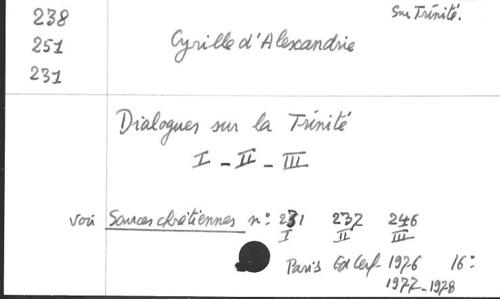 238
251
231
sur Trinité.
Cyrille d'Alexandrie
Dialogues sur la Trinité
I - II - III
voir Sources chrétiennes n: 231 237 246
I II III
Paris Ed Cerf 1976 16:
1977-1978